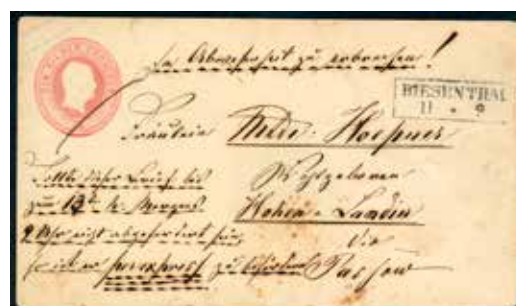 In Abwesenheit zu erbrechen!
BIESENTHAL
11 9
Fräulein
Hoepner
Wohlgeboren
Hohen-Landin
via
Passow
Sollte dieser Brief bis
zum 13t. d. Morgens
9 Uhr nicht abgefordert sein,
so ist er per express zu befördern